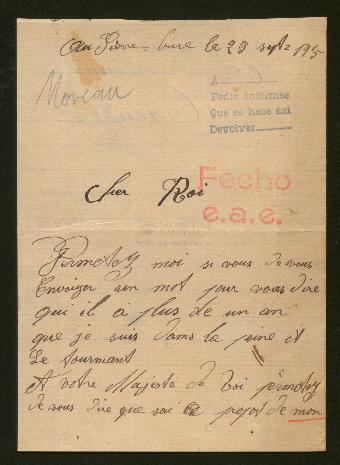 Au Pierre-bure le 29 sept 1915
Moreau
A
Pedir informes
Que se hace así
Devolver
Cher Roi
Fecho
e.a.e.
Permetey moi si vous de vous
Envoyer un mot pour vous dire
qui il à plus de un an
que je suis dans la peine et
Le tourmant
A votre Majeste de Roi permetey
de vous dire que sai ce propos de mon